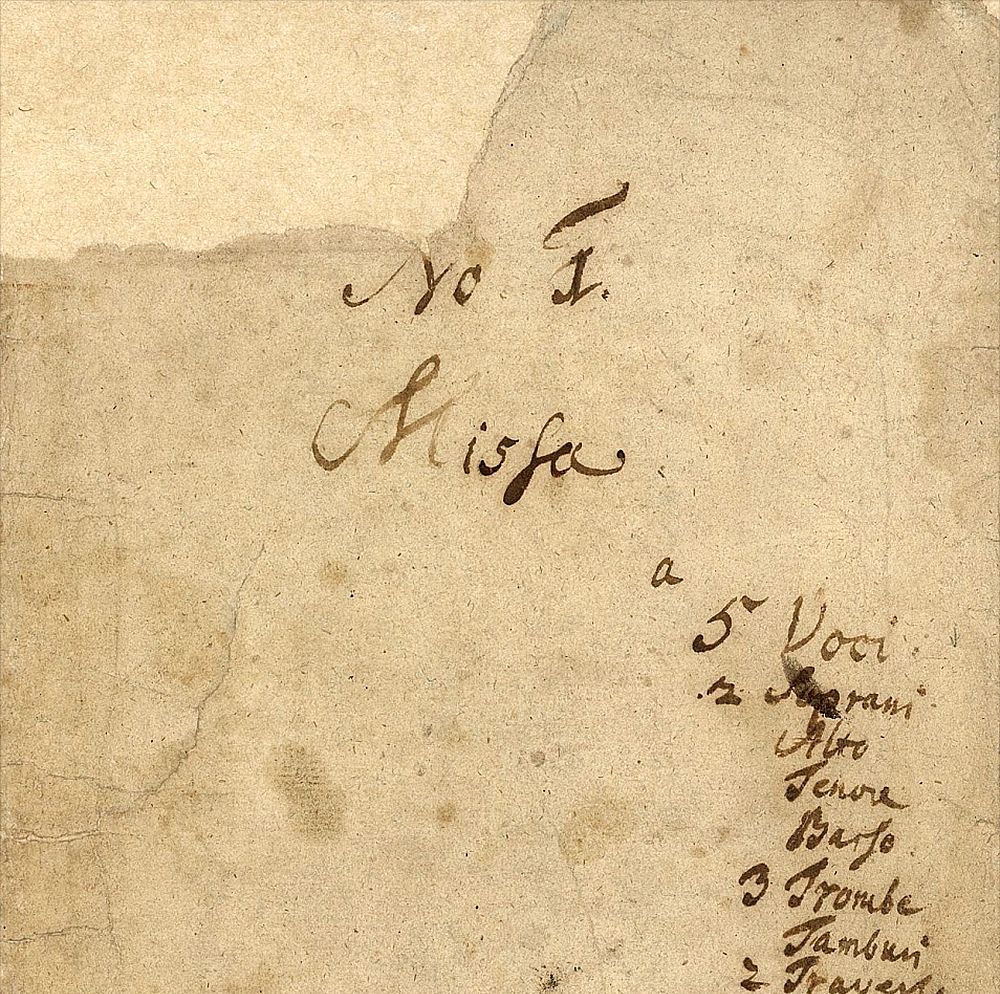 No. I.
Missa
a
5 Voci.
2 Soprani
Alto
Tenore
Basso.
3 Trombe
Tamburi
2 Travers